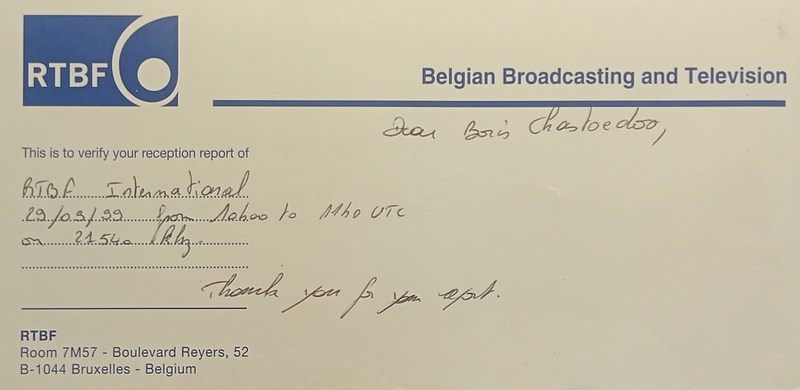 RTBF
Belgian Broadcasting and Television
Dear Boris Chastoedoo,
This is to verify your reception report of
RTBF International
29/03/99 from 10h00 to 11h0 UTC
on 21540 Khz.
Thank you for your report.
RTBF
Room 7M57 - Boulevard Reyers, 52
B-1044 Bruxelles - Belgium